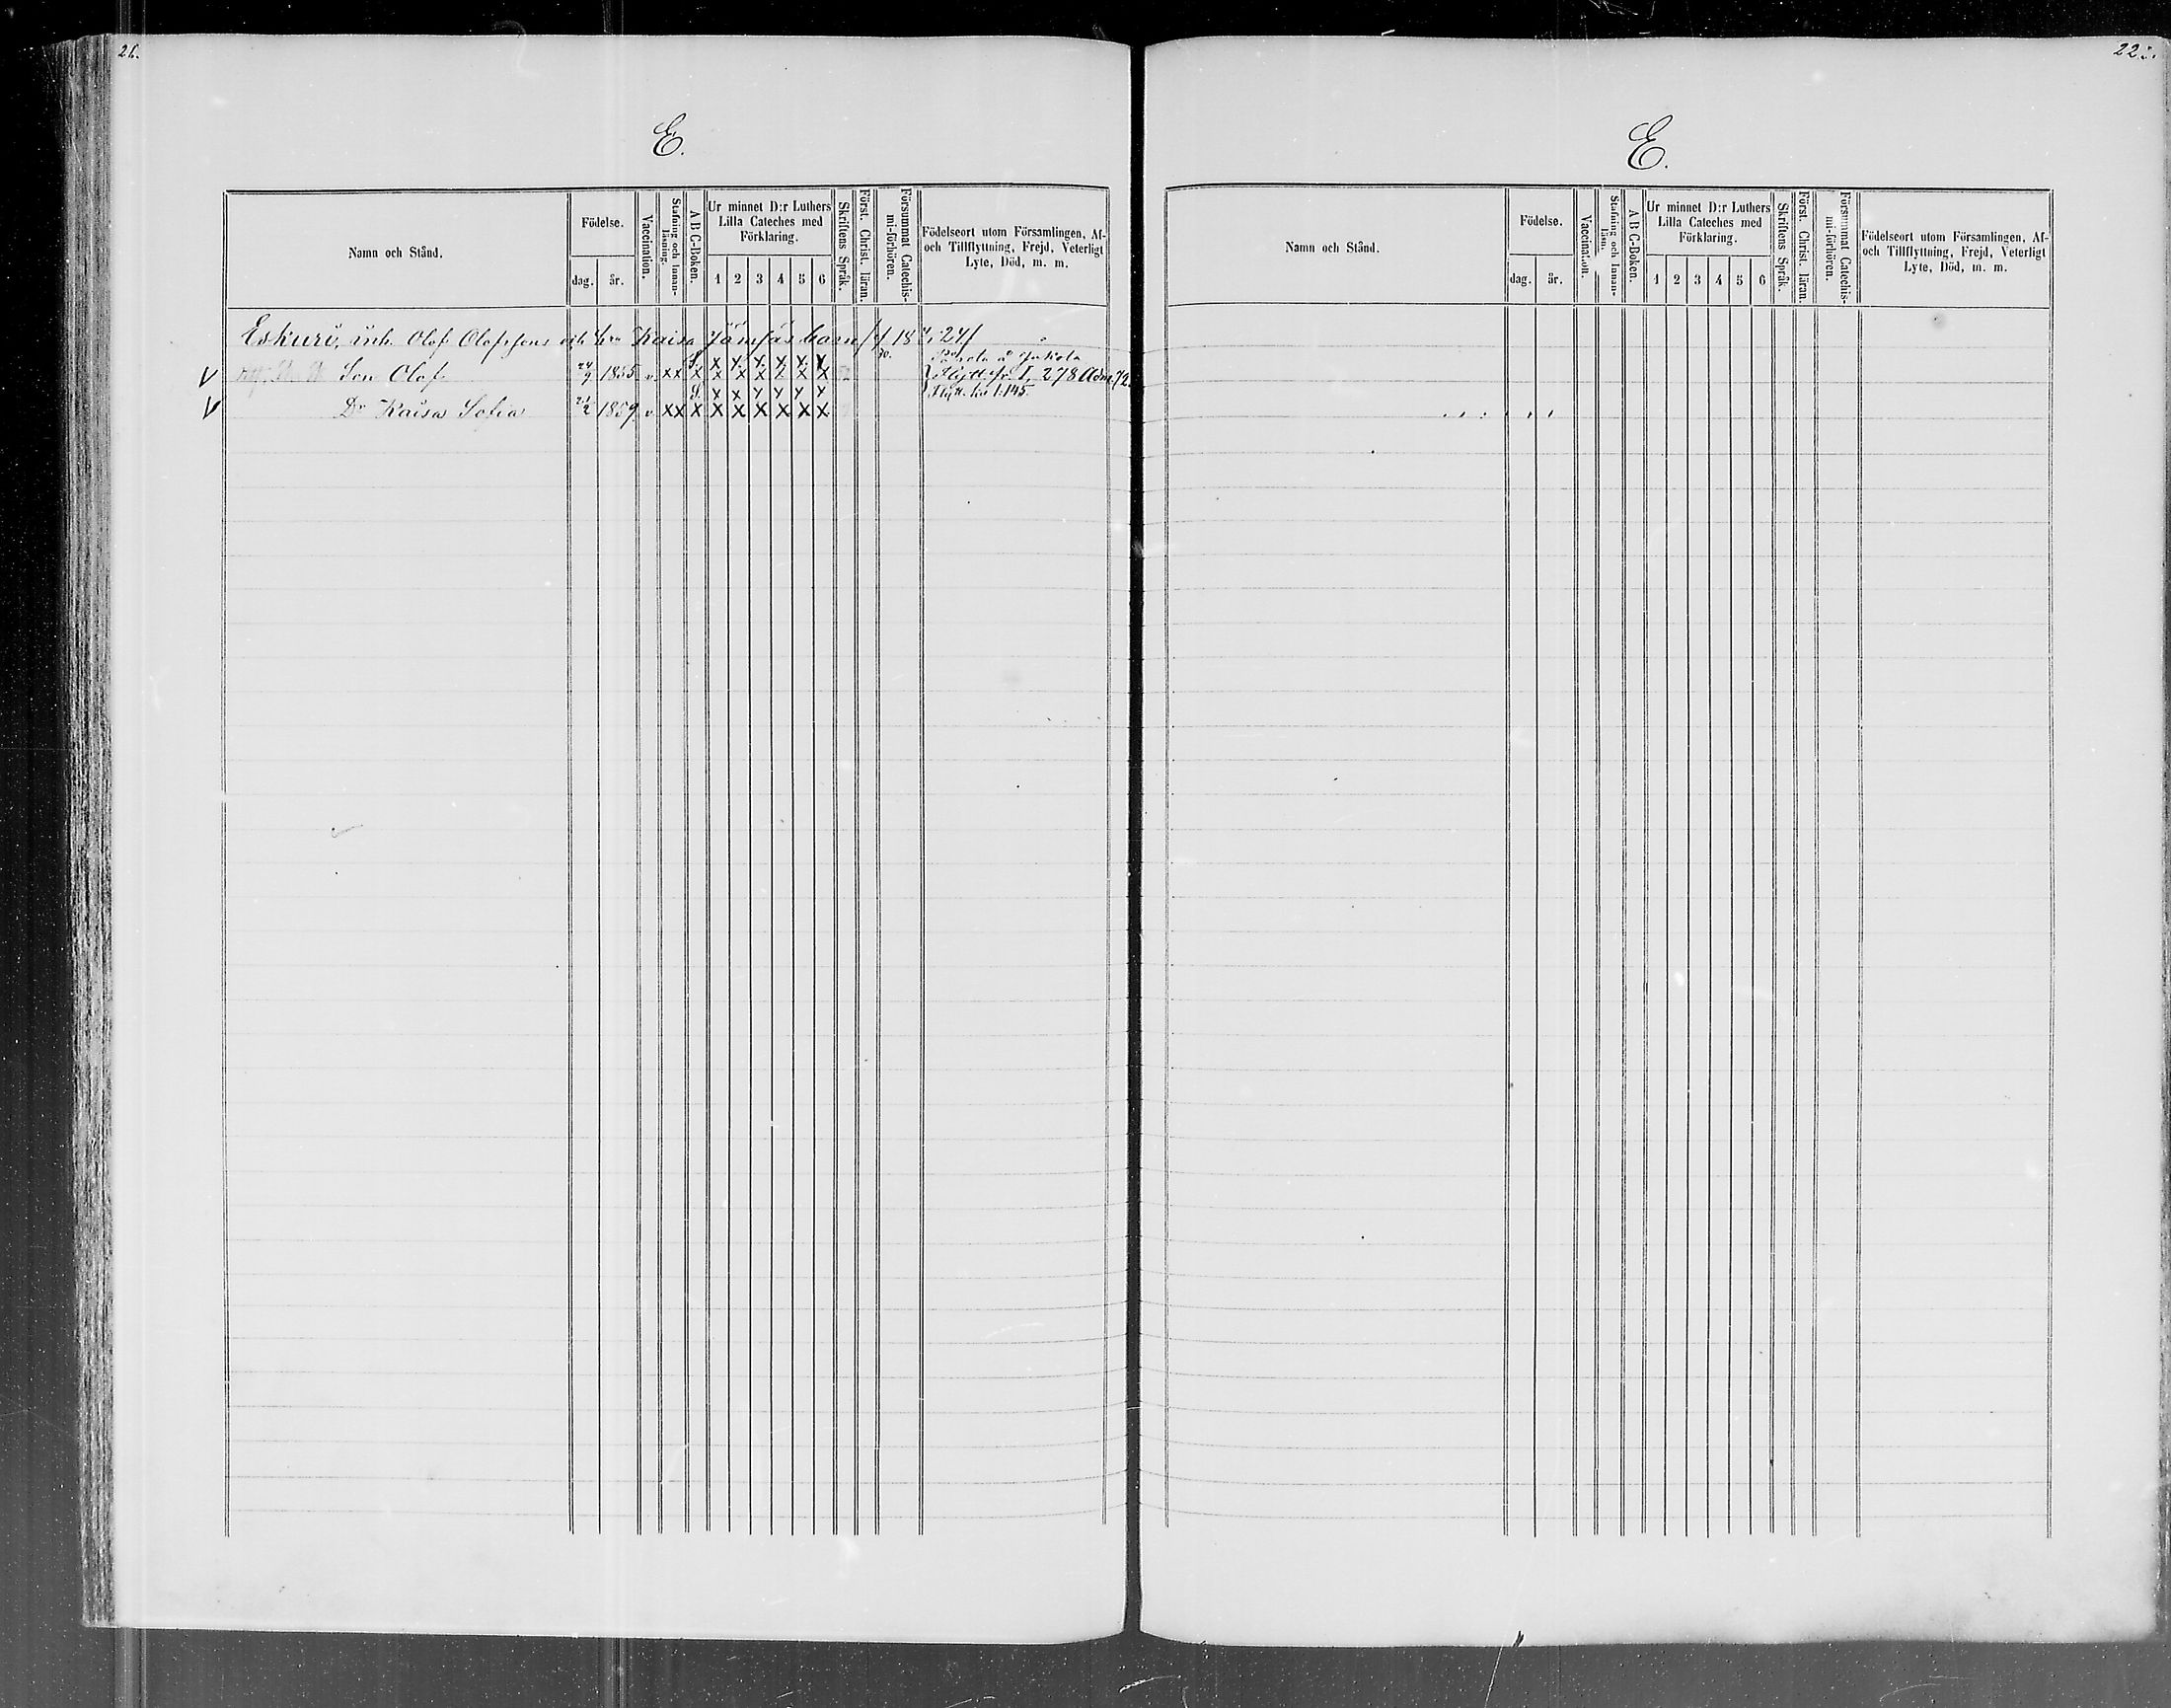 E.
Namn och Stånd.
Födelse.
dag.
år.
Vaccination.
Stafning och Innan-
läsning.
A B C-Boken.
Ur minnet D:r Luthers
Lilla Cateches med
Förklaring.
1 2 3 4 5 6
Skriftens Språk.
Först. Christ. läran.
Försummat Catechis-
mi-förhören.
Födelseort utom Församlingen, Af-
och Tillflyttning, Frejd, Veterligt
Lyte, Död, m. m.
Eskuri, inh. Olof Olofssons och hru Kaisa barn
S. x x x x x x
V Son Olof 24/9 1855 v xx x x x x x x x Flytt. fr. I, 278 Adm. 72.
S. x x x x x x Flytt. 1:145.
V Dr Kaisa Sofia 21/2 1859 v xx x x x x x x x
22
E.
Namn och Stånd.
Födelse.
dag.
år.
Vaccination.
Stafning och Innan-
läsn.
A B C-Boken.
Ur minnet D:r Luthers
Lilla Cateches med
Förklaring.
1 2 3 4 5 6
Skriftens Språk.
Först. Christ. läran.
Försummat Catechis-
mi-förhören.
Födelseort utom Församlingen, Af-
och Tillflyttning, Frejd, Veterligt
Lyte, Död, m. m.